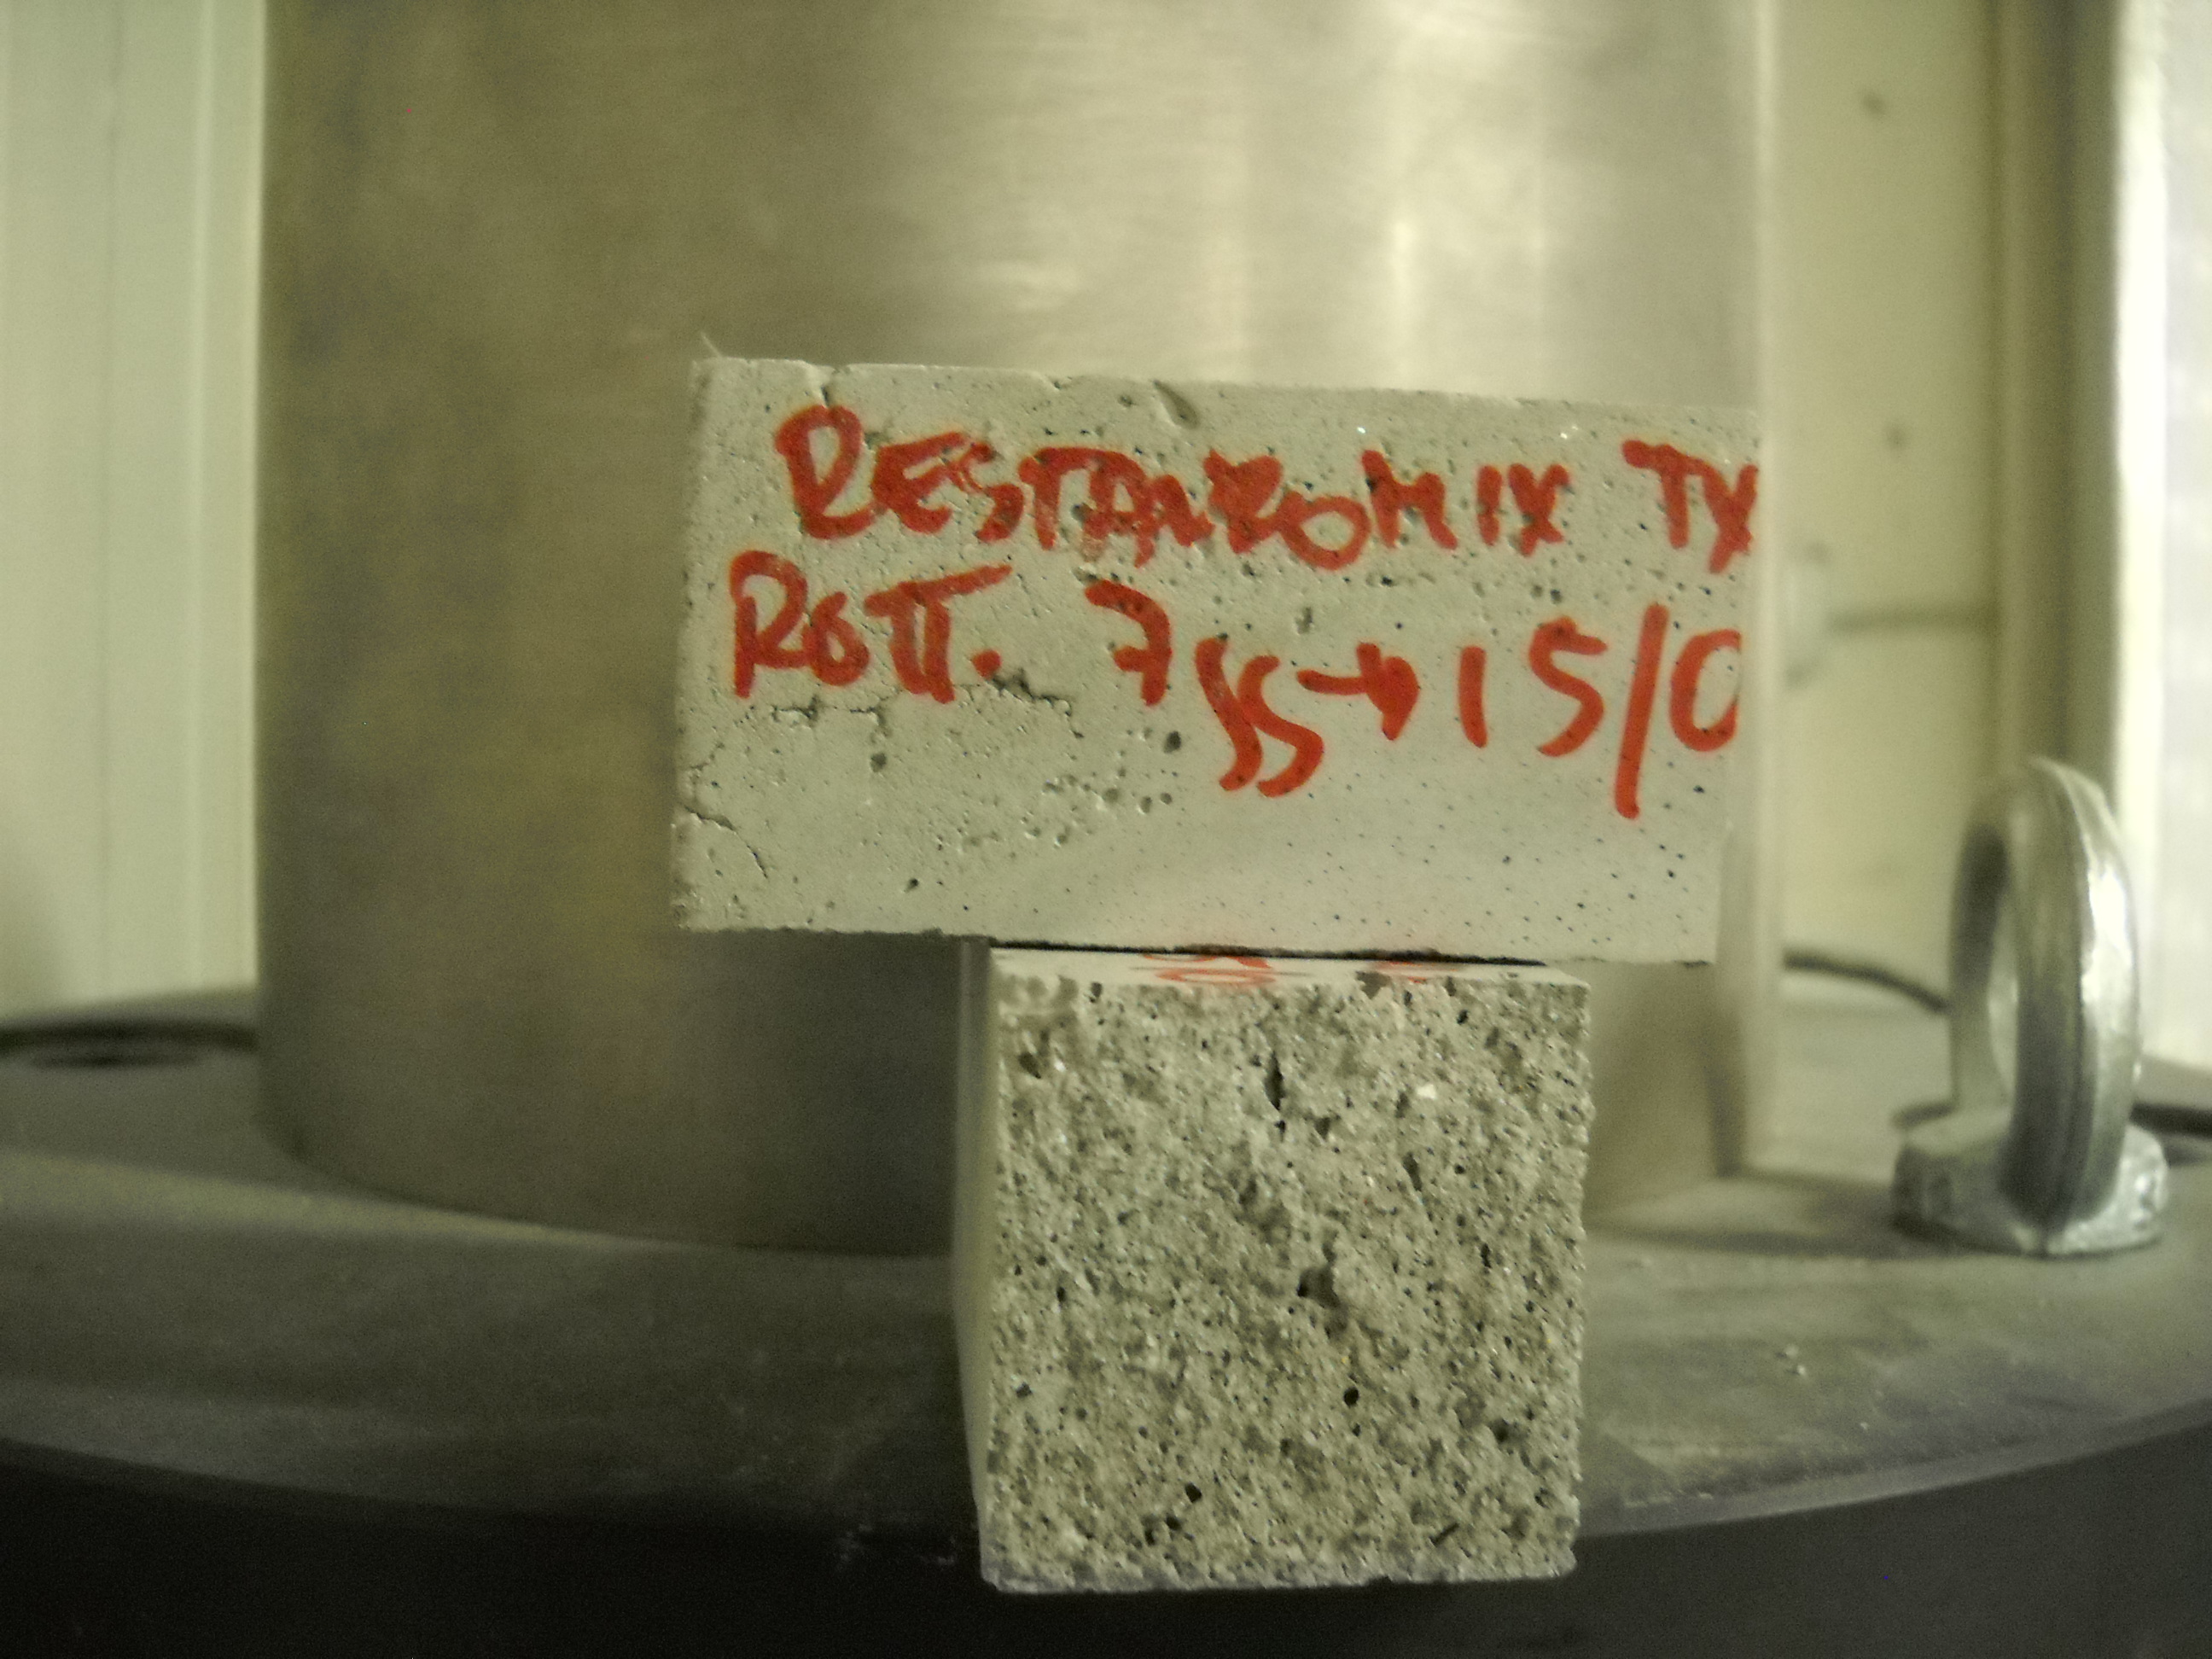 RESTAUROMIX TX
ROTT. 7 gg → 15/0